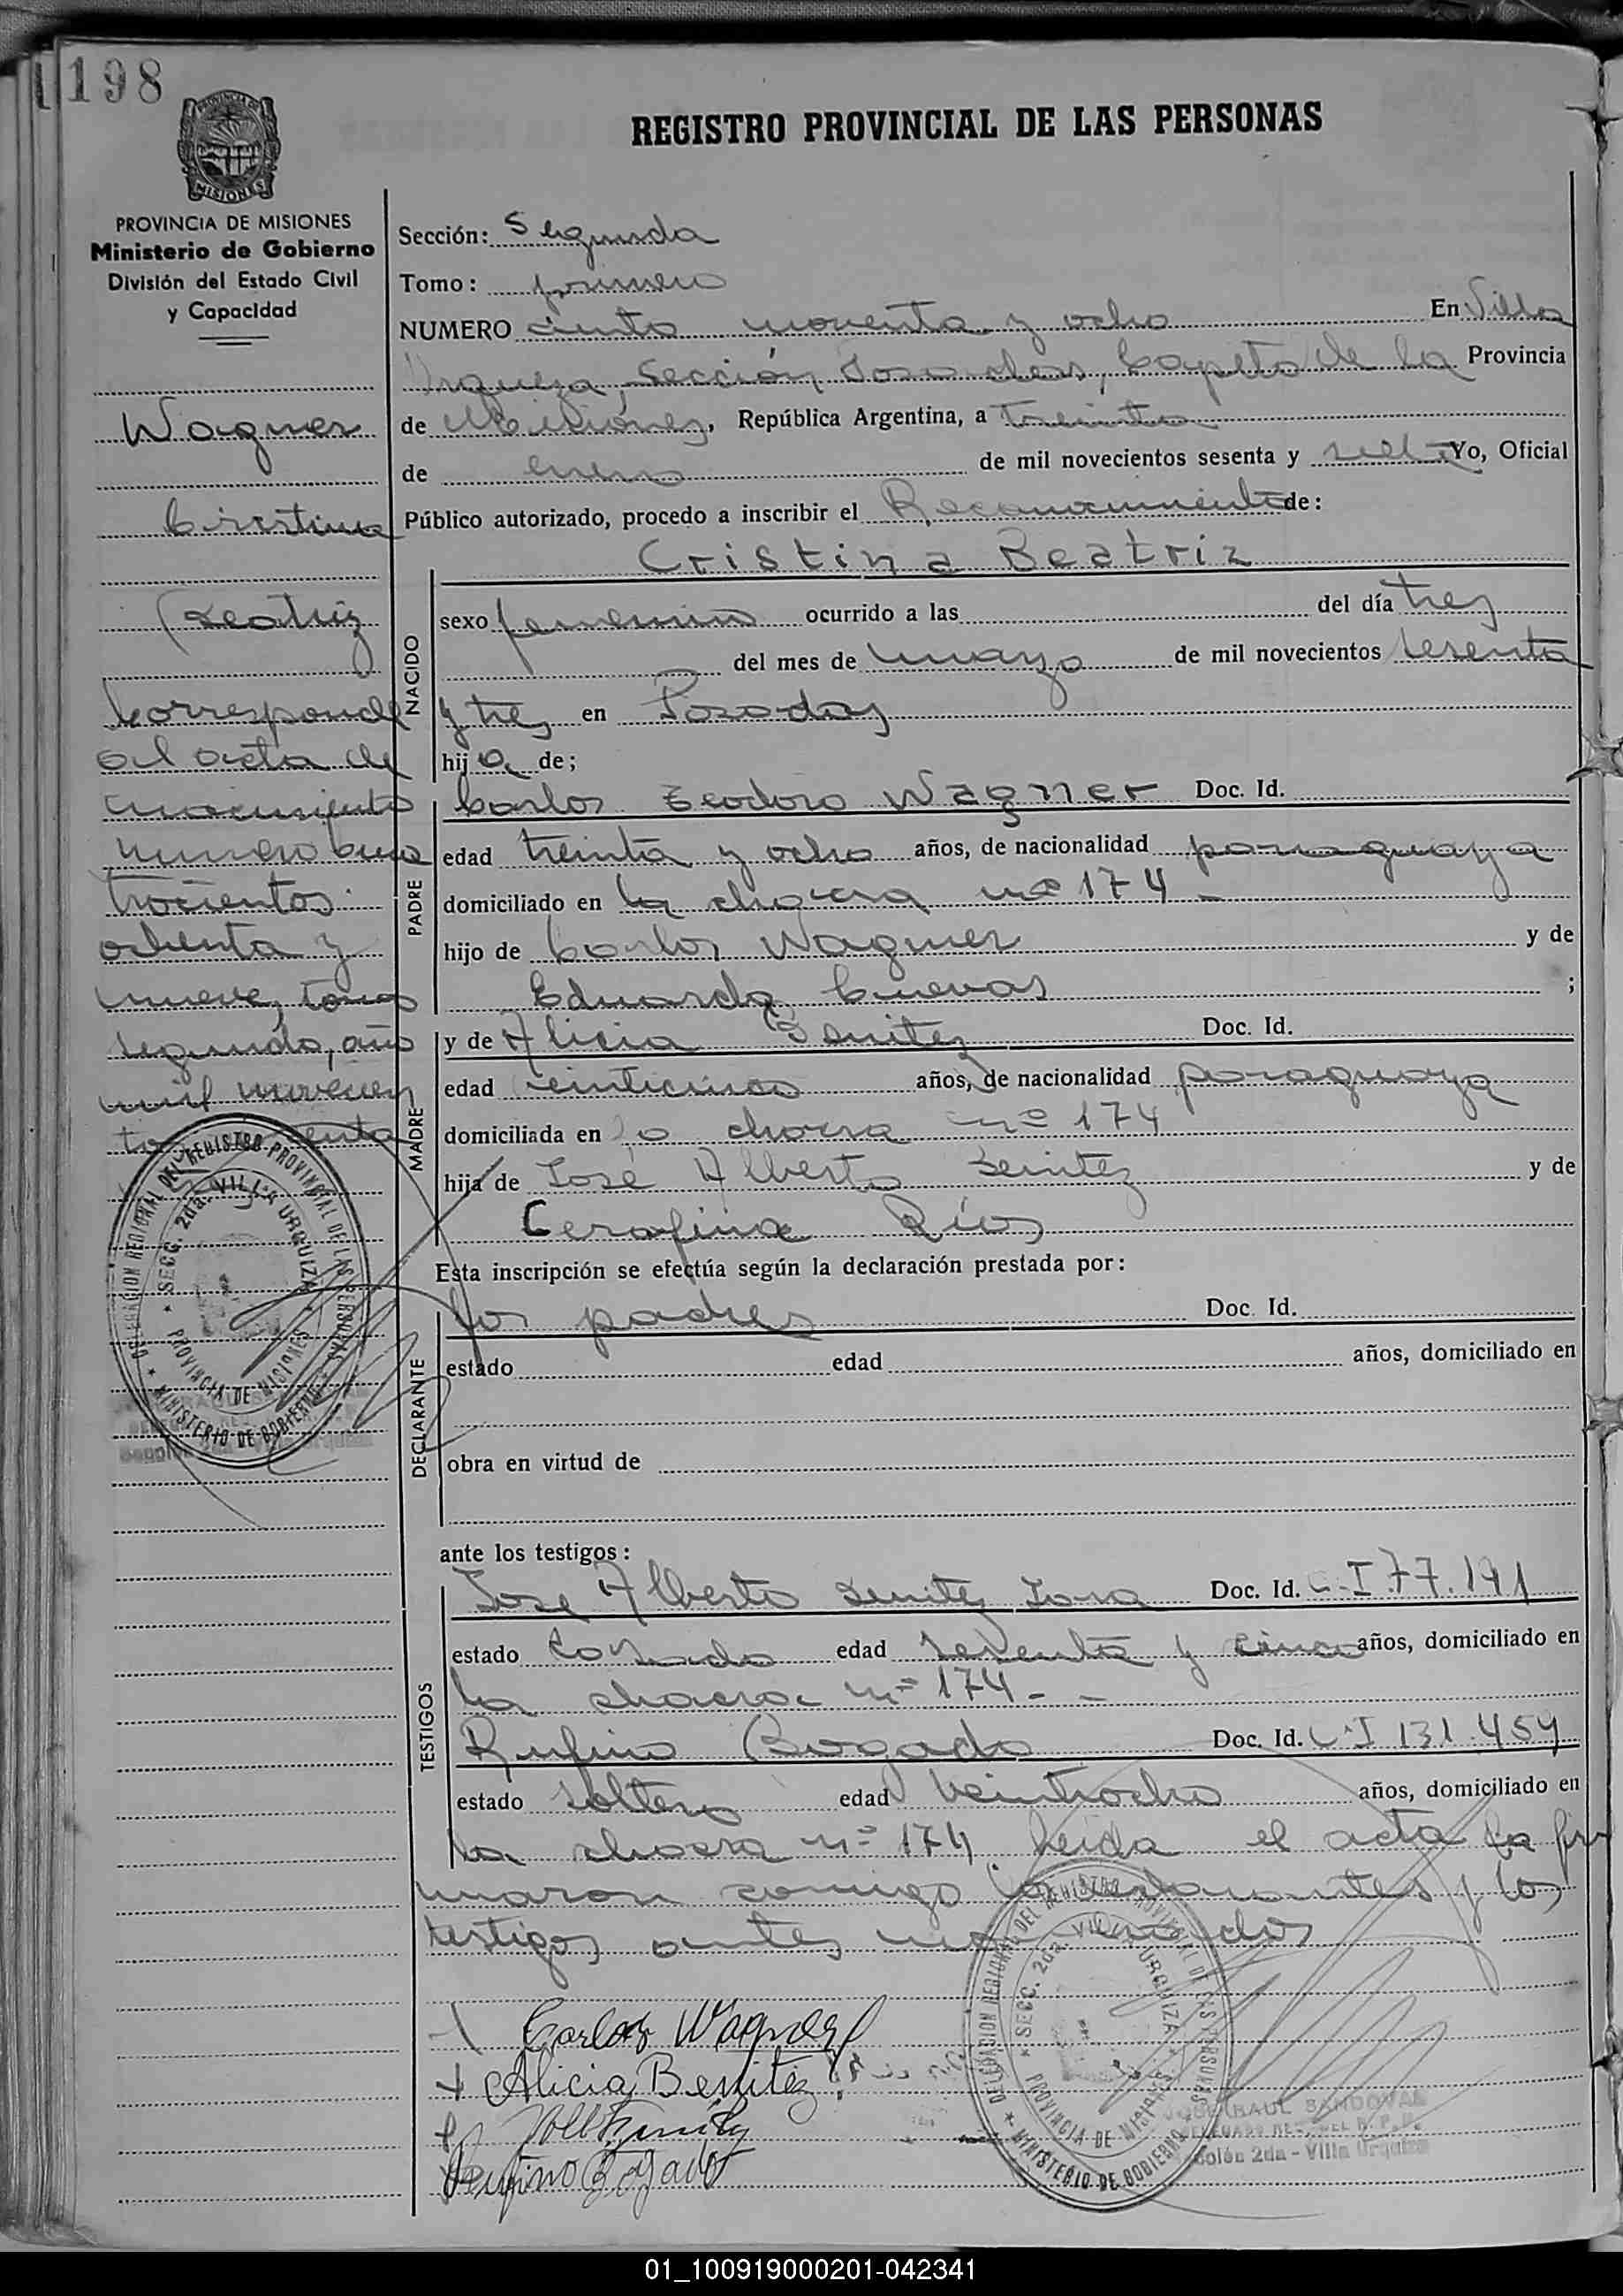 198
REGISTRO PROVINCIAL DE LAS PERSONAS
PROVINCIA DE MISIONES
Ministerio de Gobierno
División del Estado Civil
y Capacidad
Wagner
Cristina
Beatriz
Corresponde
al acta de
nacimiento
numero cua
trocientos
ochenta y
nueve, tomo
segundo, año
mil novecien
tos
Sección: Segunda
Tomo: primero
NUMERO ciento noventa y ocho En Villa
Urquiza, Sección Posadas, Capital de la Provincia
de Misiones, República Argentina, a treinta
de enero de mil novecientos sesenta y siete Yo, Oficial
Público autorizado, procedo a inscribir el Reconocimiento de:
Cristina Beatriz
NACIDO
sexo femenino ocurrido a las del día tres
del mes de mayo de mil novecientos sesenta
y tres en Posadas
hija de;
PADRE
Carlos Teodoro Wagner Doc. Id.
edad treinta y ocho años, de nacionalidad paraguaya
domiciliado en la chacra nº 174 -
hijo de Carlos Wagner y de
Eduarda Cuevas ;
MADRE
y de Alicia Benitez Doc. Id.
edad veinticinco años, de nacionalidad paraguaya
domiciliada en la chacra nº 174
hija de José Alberto Benitez y de
Cerafina Ríos
Esta inscripción se efectúa según la declaración prestada por:
DECLARANTE
los padres Doc. Id.
estado edad años, domiciliado en
obra en virtud de
ante los testigos:
TESTIGOS
Jose Alberto Benitez Doc. Id. C.I 77.191
estado Casado edad y cinco años, domiciliado en
la chacra nº 174 - -
Rufino Bogado Doc. Id. C.I 131.459
estado soltero edad veintiocho años, domiciliado en
la chacra nº 174. leida el acta la fir
maron conmigo los declarantes y los
testigos antes mencionados
Carlos Wagner
Alicia Benitez
Rufino Bogado
DELEGACION REGIONAL DEL REGISTRO PROVINCIAL DE LAS PERSONAS
MINISTERIO DE GOBIERNO
SECC. 2da. VILLA URQUIZA
PROVINCIA DE MICIONES
DELEGACION REGIONAL DEL REGISTRO PROVINCIAL DE LAS PERSONAS
MINISTERIO DE GOBIERNO
SECC. 2da. VILLA URQUIZA
PROVINCIA DE MICIONES
JOSE RAUL SANDOVAL
2da - Villa Urquiza
01_100919000201-042341